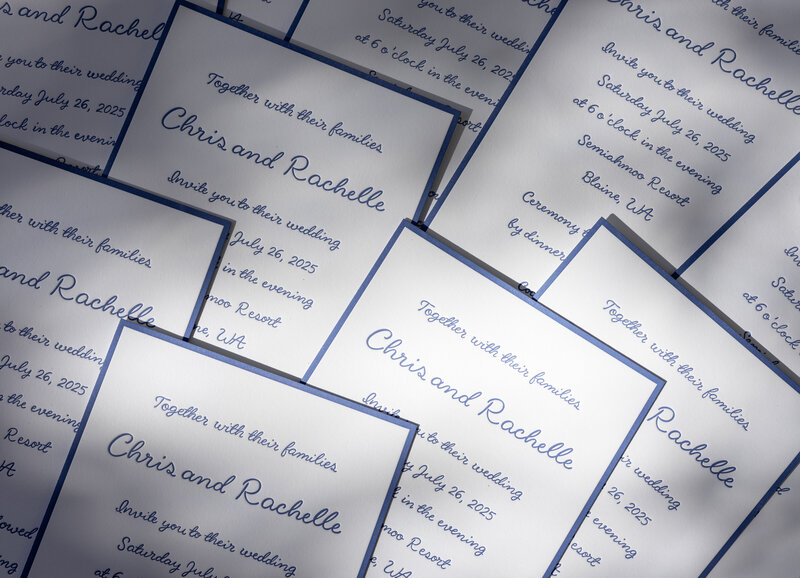 and Rachel
you to their wedding
July 26, 2025
in the evening
WA
to their wedding
Saturday July 26, 202
at 6 o'clock in the
Together with their families
Chris and Rachelle
Invite you to their wedding
July 26, 2025
in the evening
Resort
WA
with their families
Chris and Rachelle
Invite you to their wedding
Saturday July 26, 2025
at 6 o'clock in the evening
Semiahmoo Resort
Blaine, WA
Ceremony
by dinner
at 6 o'clock
with their families
and Rachelle
to their wedding
July 26, 2025
the evening
Resort
WA
Together with their families
Chris and Rachelle
Invite you to their wedding
July 26, 2025
in the evening
Resort
WA
Together with their families
Rachelle
wedding
26, 2025
evening
Together with their families
Chris and Rachelle
Invite you to their wedding
Saturday July 26, 2025
at 6 o'clock in the evening